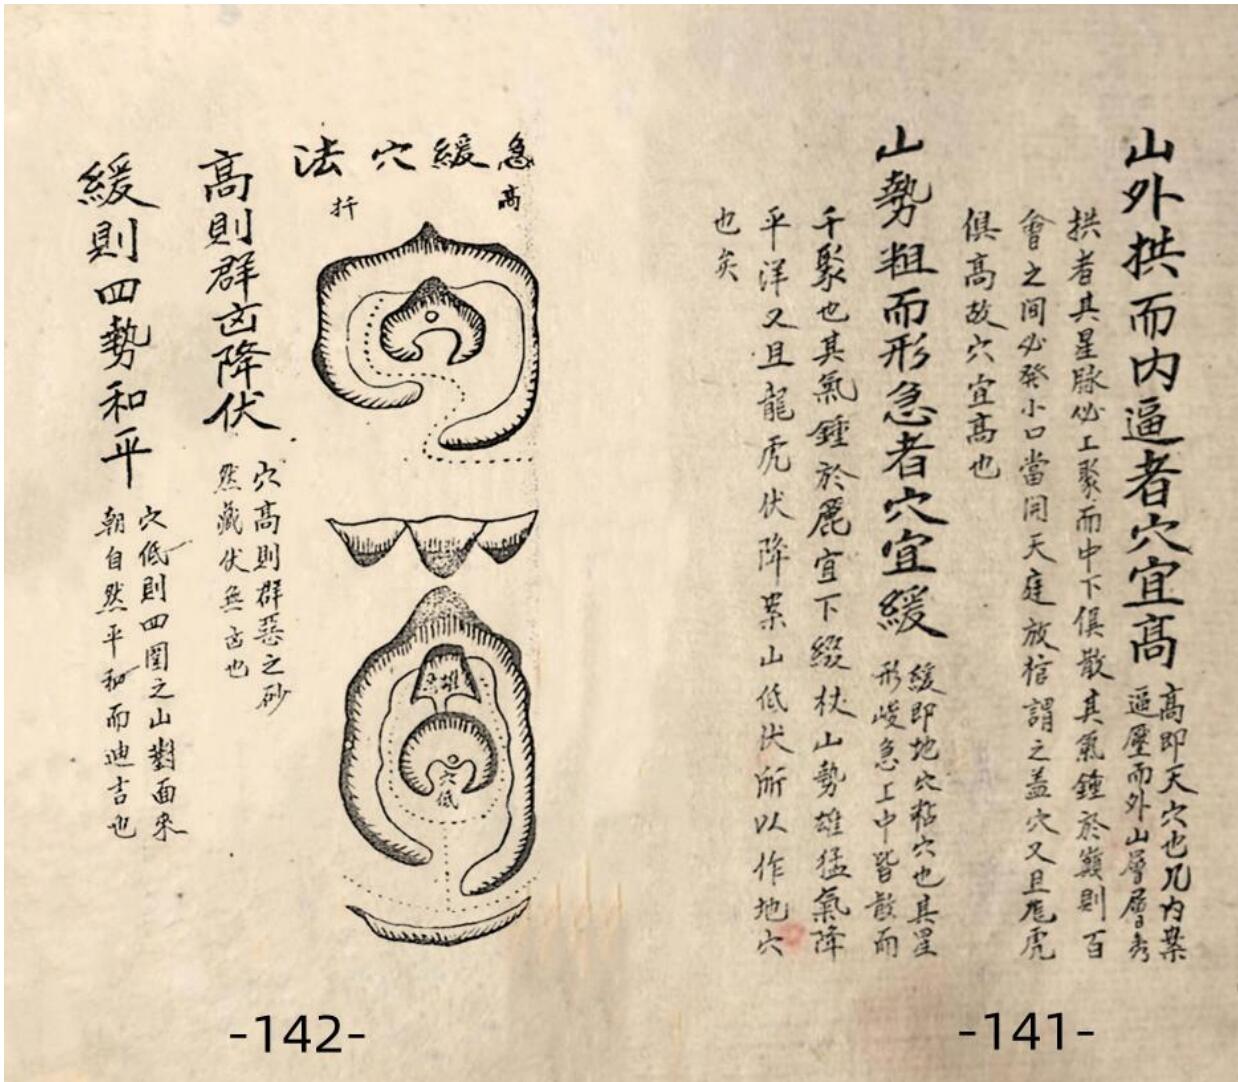 山外拱而内逼者穴宜高
高即天穴也凡内案
逼壓而外山層層秀
拱者其星脉必上聚而中下俱散其氣鍾於巔則百
會之間必發小口當開天庭放棺謂之盖穴又且龍虎
俱高故穴宜高也
山勢粗而形急者穴宜緩
緩即地穴粘穴也其星
形峻急上中皆散而
千聚也其氣鍾於麓宜下綴杖山勢雄猛氣降
平洋又且龍虎伏降案山低伏所以作地穴
也矣
-141-
急緩穴法
高
扦
穴低
高則群凶降伏
穴高則群惡之砂
然藏伏無凶也
緩則四勢和平
穴低則四圍之山對面來
朝自然平和而迪吉也
-142-